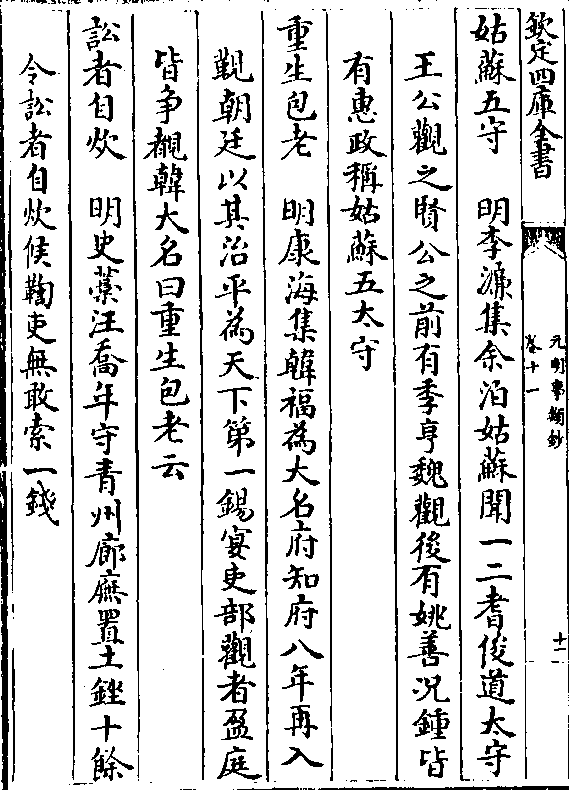 欽定四庫全書
元明事類鈔
卷十一
十一
姑蘇五守　明李濂集余泊姑蘇聞一二耆俊道太守
王公觀之賢公之前有季亨魏觀後有姚善况鍾皆
有惠政稱姑蘇五太守
重生包老　明康海集韓福為大名府知府八年再入
覲朝廷以其治平為天下第一錫宴吏部觀者盈庭
皆争覩韓大名曰重生包老云
訟者自炊　明史藁汪喬年守青州廊廡置土銼十餘
令訟者自炊候鞫吏無敢索一錢